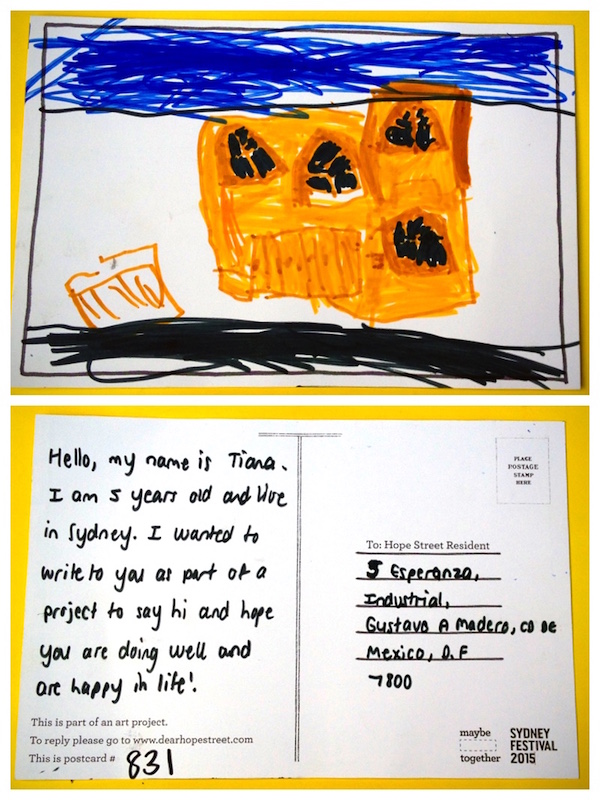 Hello, my name is Tiana.
I am 5 years old and live
in Sydney. I wanted to
write to you as part of a
project to say hi and hope
you are doing well and
are happy in life!
This is part of an art project.
To reply please go to www.dearhopestreet.com
This is postcard # 831
PLACE
POSTAGE
STAMP
HERE
To: Hope Street Resident
5 Esperanza,
Industrial,
Gustavo A Madero, CD DE
Mexico, D.F
7800
maybe
together
SYDNEY
FESTIVAL
2015